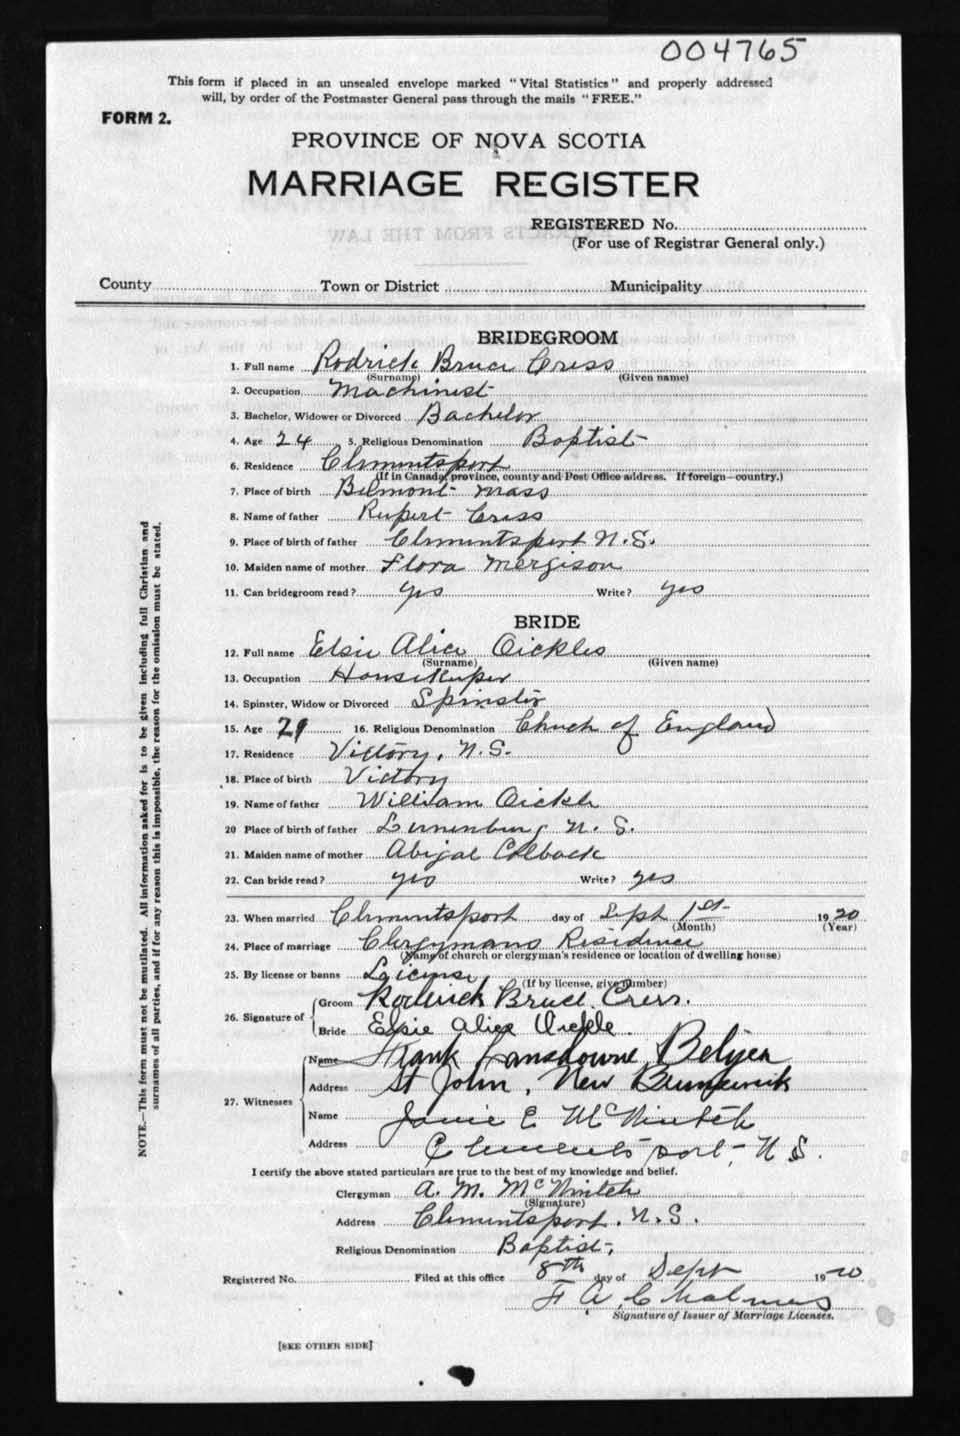 004765
This form if placed in an unsealed envelope marked "Vital Statistics" and properly addressed
will, by order of the Postmaster General pass through the mails "FREE."
FORM 2.
PROVINCE OF NOVA SCOTIA
MARRIAGE REGISTER
REGISTERED No.
(For use of Registrar General only.)
County Town or District Municipality
BRIDEGROOM
1. Full name Rodrick Bruce Criss
(Surname) (Given name)
2. Occupation Machinist
3. Bachelor, Widower or Divorced Bachelor
4. Age 24 5. Religious Denomination Baptist
6. Residence Clementsport
(If in Canada, province, county and Post Office address. If foreign—country.)
7. Place of birth Belmont Mass
8. Name of father Rupert Criss
9. Place of birth of father Clementsport N.S.
10. Maiden name of mother Flora Mergison
11. Can bridegroom read? yes Write? yes
BRIDE
12. Full name Elsie Alice Oickles
(Surname) (Given name)
13. Occupation Housekeeper
14. Spinster, Widow or Divorced Spinster
15. Age 21 16. Religious Denomination Church of England
17. Residence Victory, N.S.
18. Place of birth Victory
19. Name of father William Oickle
20 Place of birth of father Lunenburg N. S.
21. Maiden name of mother Abigal Colback
22. Can bride read? yes Write? yes
23. When married Clementsport day of Sept 1st 1920
(Month) (Year)
24. Place of marriage Clergymans Residence
(Name of church or clergyman's residence or location of dwelling house)
25. By license or banns License
(If by license, give number)
26. Signature of Groom Roderick Bruce Cress.
Bride Elsie Alice Oickle.
27. Witnesses Name Frank Lansdowne Belyea
Address St John, New Brunswick
Name Janie E McNintch
Address Clementsport, N S.
I certify the above stated particulars are true to the best of my knowledge and belief.
Clergyman A. M. McNintch
(Signature)
Address Clementsport. N.S.
Religious Denomination Baptist,
Registered No. Filed at this office 8th day of Sept 1920
F A C
Signature of Issuer of Marriage Licenses.
[SEE OTHER SIDE]
NOTE.—This form must not be mutilated. All information asked for is to be given including full Christian and
surnames of all parties, and if for any reason this is impossible, the reason for the omission must be stated.